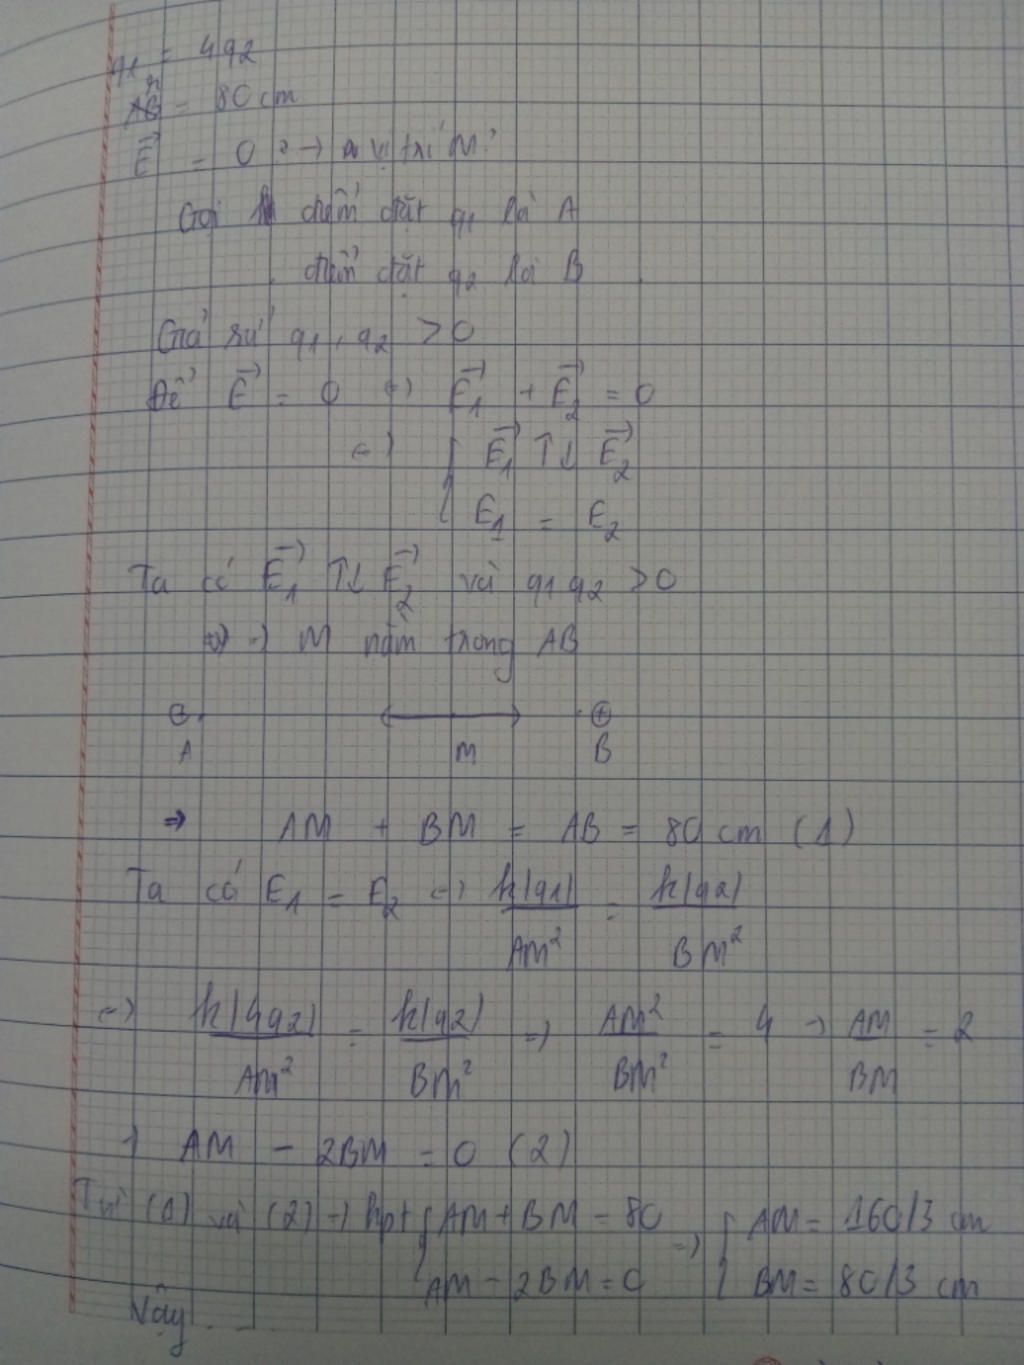 q1 = 4q2
AB = 80 cm
E⃗ = 0 ? → vị trí M?
Gọi điểm đặt q1 là A
điểm đặt q2 là B
Giả sử q1, q2 > 0
Để E⃗ = 0 ⇔ E⃗1 + E⃗2 = 0
⇔ { E⃗1 ↑↓ E⃗2
E1 = E2
Ta có E⃗1 ↑↓ E⃗2 và q1 q2 > 0
⇒ M nằm trong AB
A M B
⇒ AM + BM = AB = 80 cm (1)
Ta có E1 = E2 ⇔ k|q1|/AM² = k|q2|/BM²
⇔ k|4q2|/AM² = k|q2|/BM² ⇒ AM²/BM² = 4 → AM/BM = 2
⇒ AM - 2BM = 0 (2)
Từ (1) và (2) ⇒ hpt { AM + BM = 80 ⇒ { AM = 160/3 cm
AM - 2BM = 0 BM = 80/3 cm
Vậy